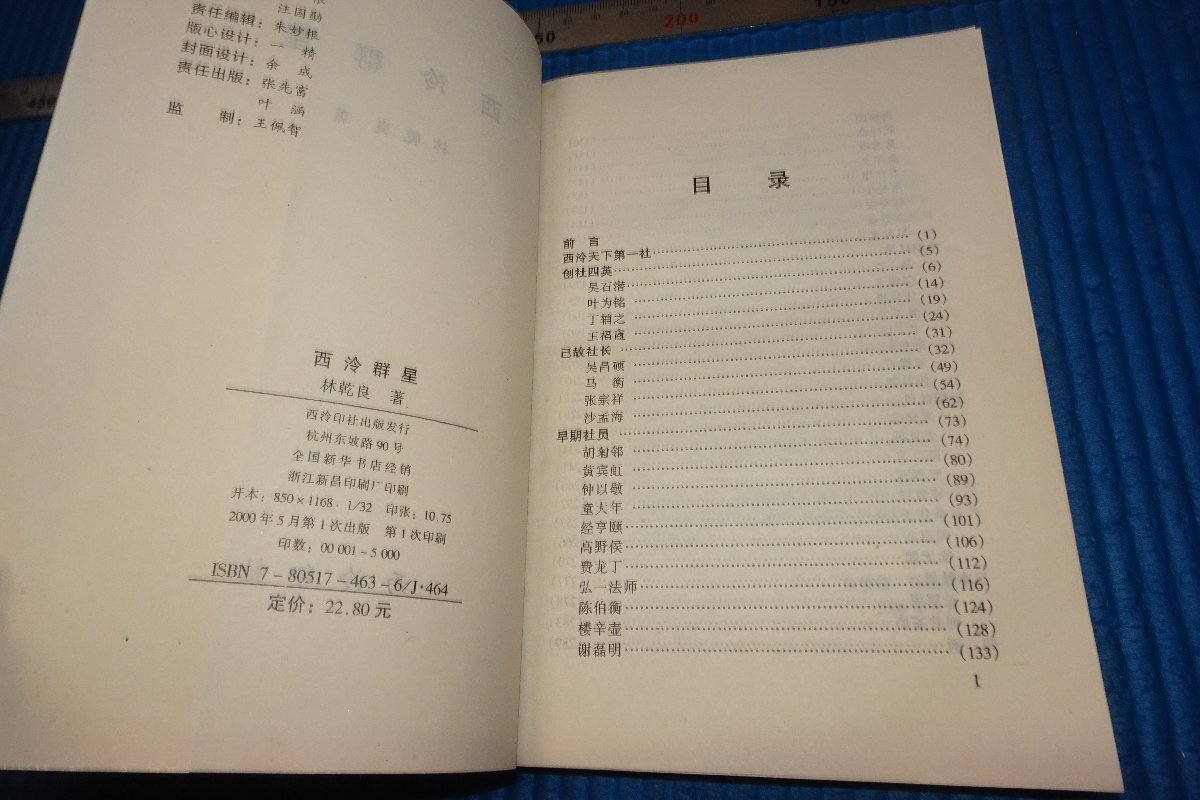 汪国勋
责任编辑：朱妙根
版心设计：一 精
封面设计：余 成
责任出版：张先富
叶 涵
监 制：王佩智
西泠群星
林乾良 著
西泠印社出版发行
杭州东坡路90号
全国新华书店经销
浙江新昌印刷厂印刷
开本：850×1168·1/32 印张：10.75
2000年5月第1次出版 第1次印刷
印数：00 001-5 000
ISBN 7-80517-463-6/J·464
定价：22.80元
200
150
目 录
前 言………(1)
西泠天下第一社………(5)
创社四英………(6)
吴石潜………(14)
叶为铭………(19)
丁辅之………(24)
王福庵………(31)
已故社长………(32)
吴昌硕………(49)
马 衡………(54)
张宗祥………(62)
沙孟海………(73)
早期社员………(74)
胡匊邻………(80)
黄宾虹………(89)
钟以敬………(93)
童大年………(101)
经亨颐………(106)
高野侯………(112)
费龙丁………(116)
弘一法师………(124)
陈伯衡………(128)
楼辛壶………(133)
谢磊明
1